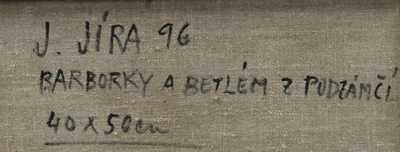 J. JÍRA 96
BARBORKY A BETLÉM Z PODZÁMČÍ
40 x 50 cm